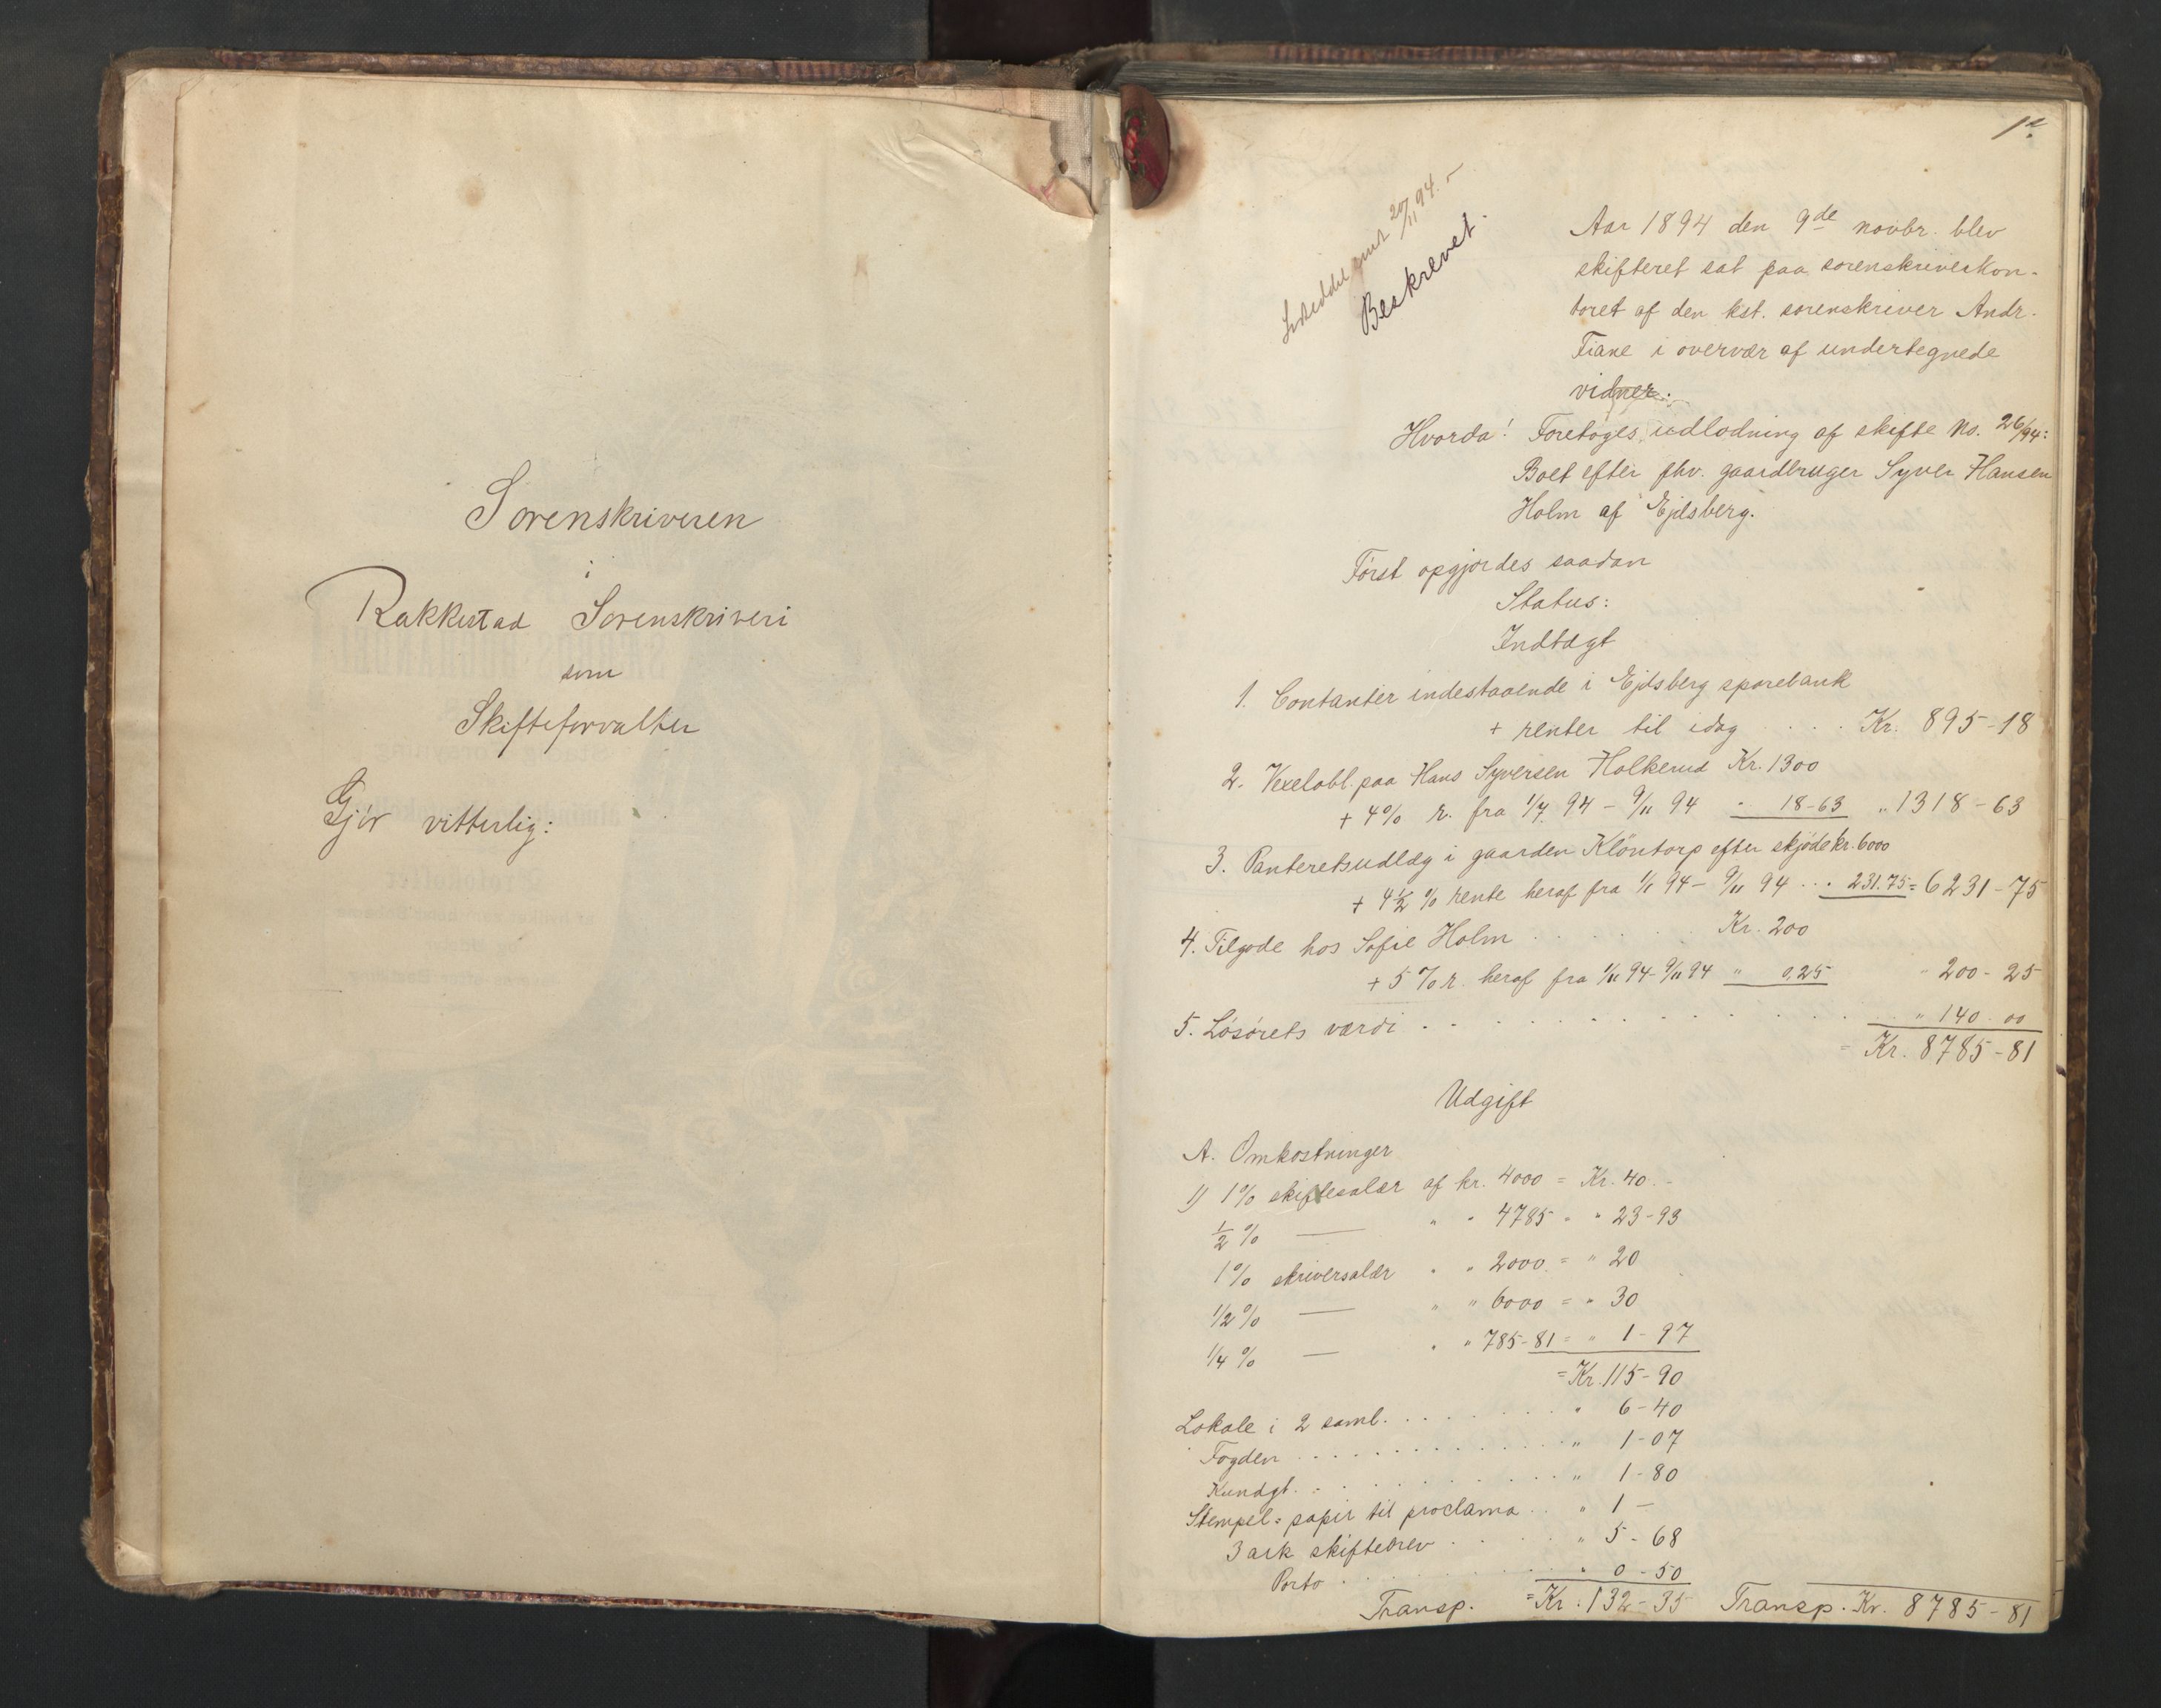 Sorenskriveren
i
Rakkestad Sorenskriveri
som
Skifteforvalter
Gjör vitterlig:
1a
20/11 94.
Beskrevet.
Aar 1894 den 9de novbr. blev
skifteret sat paa sorenskriverkon-
toret af den kst. sorenskriver Andr.
Fiane i overvær af undertegnede
vidner:
Hvorda! Foretoges udlodning af skifte No. 26/94:
Boet efter fhv. gaardbruger Syver Hansen
Holm af Ejdsberg.
Först opgjordes saadan
Status:
Indtægt
1. Contanter indestaaende i Ejdsberg sparebank
+ renter til idag . . . . Kr. 895-18
2. Vexelobl. paa Hans Syversen Holkerud Kr. 1300
+ 4% r. fra 1/7 94 - 9/11 94 " 18-63 " 1318-63
3. Panteretsudlæg i gaarden Klöntorp efter skjöde kr. 6000
+ 4 1/2 % rente heraf fra 1/1 94 - 9/11 94 . . . 231.75 = 6231-75
4. Tilgode hos Sofie Holm . . . . . . Kr. 200
+ 5 % r. heraf fra 1/11 94 - 9/11 94 " 0,25 " 200-25
5. Lösörets værdi . . . . . . . . . . . . " 140-00
= Kr. 8785-81
Udgift
A. Omkostninger
1) 1% skiftesalær af kr. 4000 = Kr. 40.-
1/2 % — " " 4785 " " 23-93
1% skriversalær " " 2000 = " 20
1/2 % — " " 6000 = " 30
1/4 % — " " 785-81 = " 1-97
= Kr. 115-90
Lokale i 2 saml. . . . . . . . " 6-40
Fogden . . . . . . . . . . . . " 1-07
Kundgt. . . . . . . . . . . . " 1-80
Stempel = papir til proclama . . " 1 -
3 ark skiftebrev . . . . . " 5-68
Porto . . . . . . . . . . " 0-50
Transp. = Kr. 132-35 Transp. Kr. 8785-81